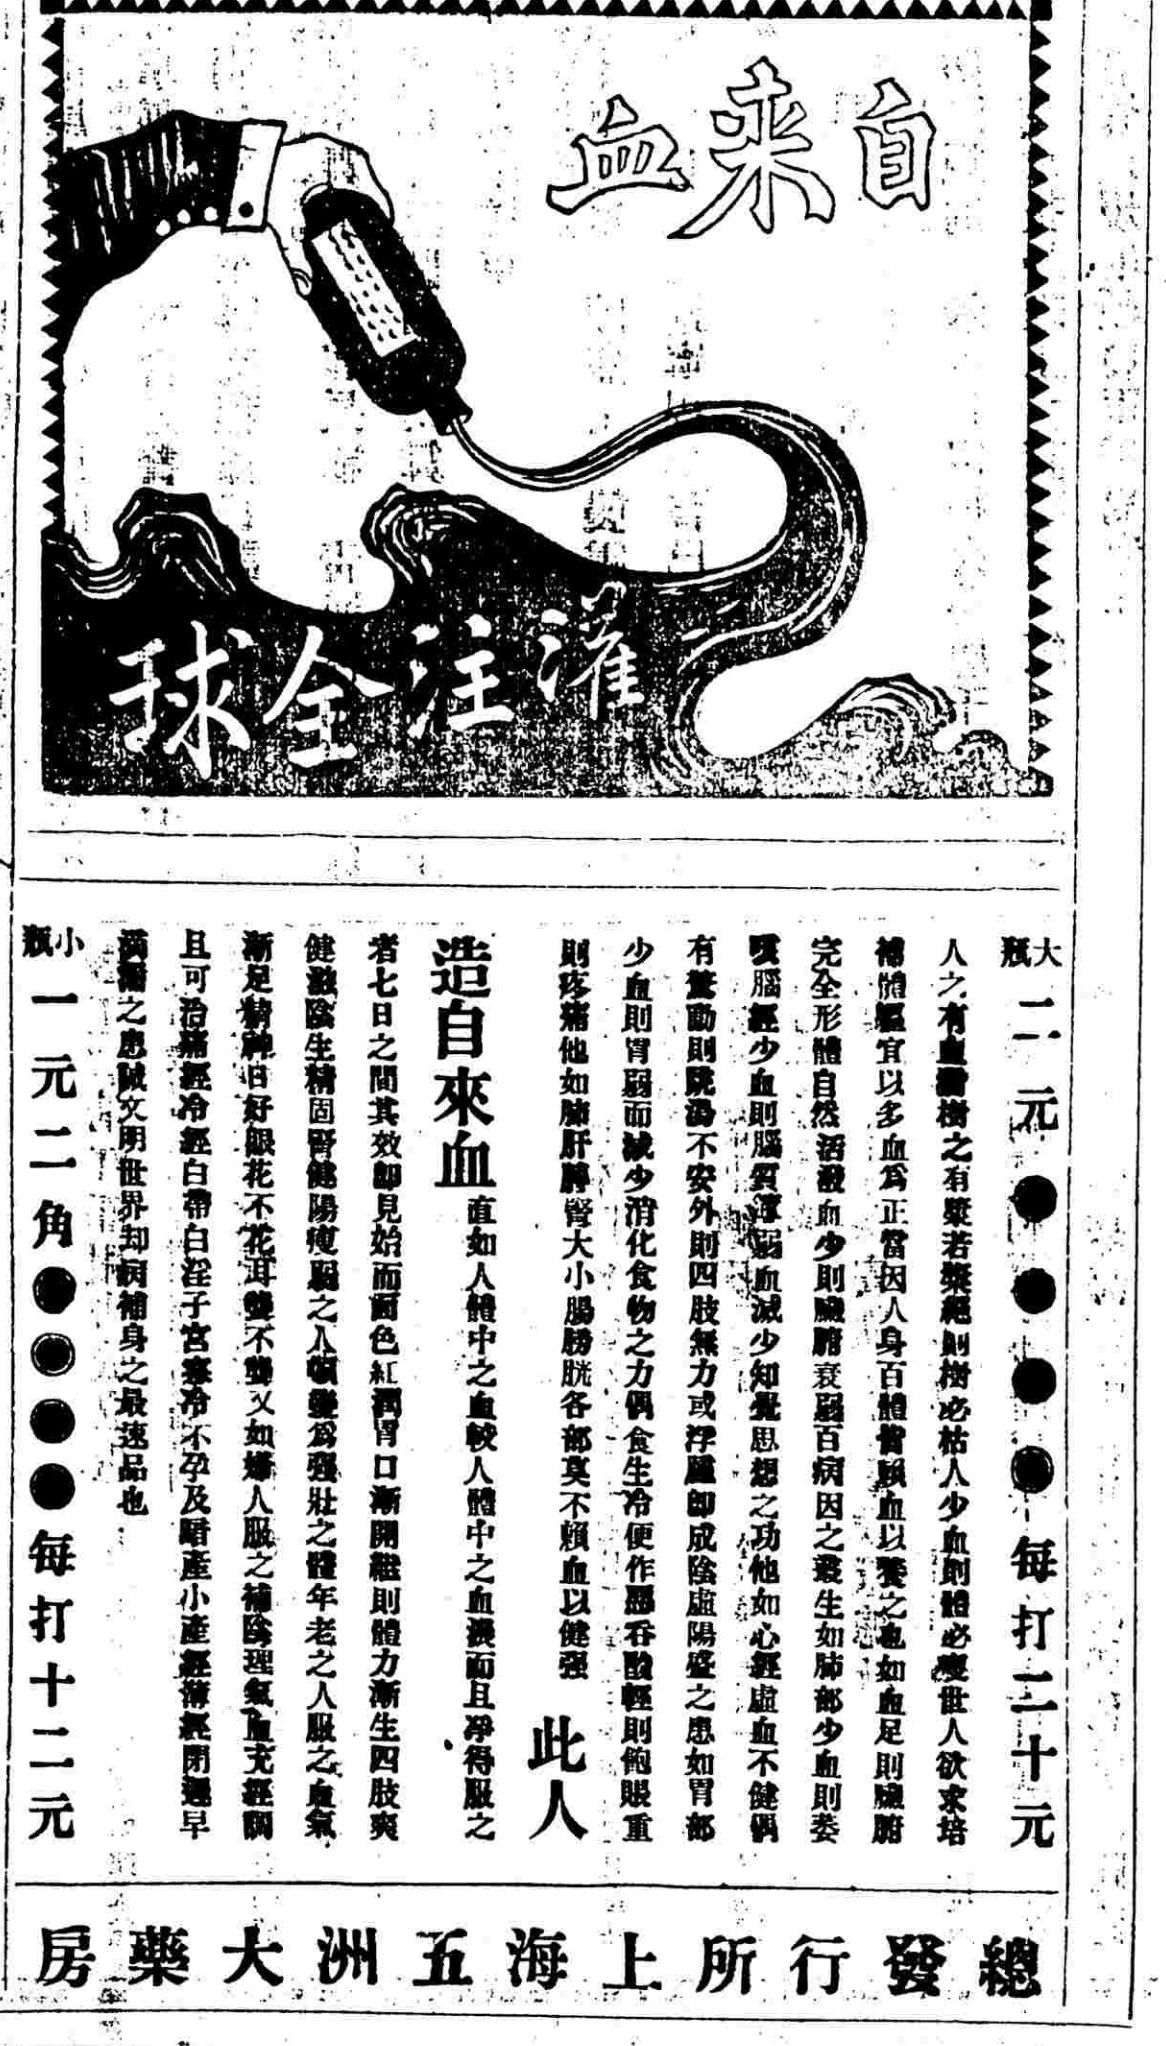 自來血
灌注全球
大瓶 二元●●●●每打二十元
人之有血猶樹之有漿若漿絕則樹必枯人少血則體必瘦世人欲求培
補體軀宜以多血為正當因人身百體皆賴血以養之也如血足則臟腑
完全形體自然活潑血少則臟腑衰弱百病因之叢生如肺部少血則委
咳腦經少血則腦質薄弱血減少知覺思想之功他如心經虛血不健偶
有驚動則跳盪不安外則四肢無力或浮腫卽成陰虛陽盛之患如胃部
少血則胃弱而減少消化食物之力偶食生冷便作惡吞酸輕則飽脹重
則疼痛他如肺肝脾腎大小腸膀胱各部莫不賴血以健强 此人
造自來血 直如人體中之血較人體中之血濃而且凈得服之
者七日之間其效卽見始而面色紅潤胃口漸開繼則體力漸生四肢爽
健滋陰生精固腎健陽瘦弱之人頓變為强壯之體年老之人服之血氣
漸足精神日好眼花不花耳聾不聾又如婦人服之補陰理氣血充經調
且可治痛經冷經白帶白淫子宮寒冷不孕及暗產小產經薄經閉遲早
之患誠文明世界却病補身之最速品也
小瓶 一元二角●●●●每打十二元
總發行所上海五洲大藥房